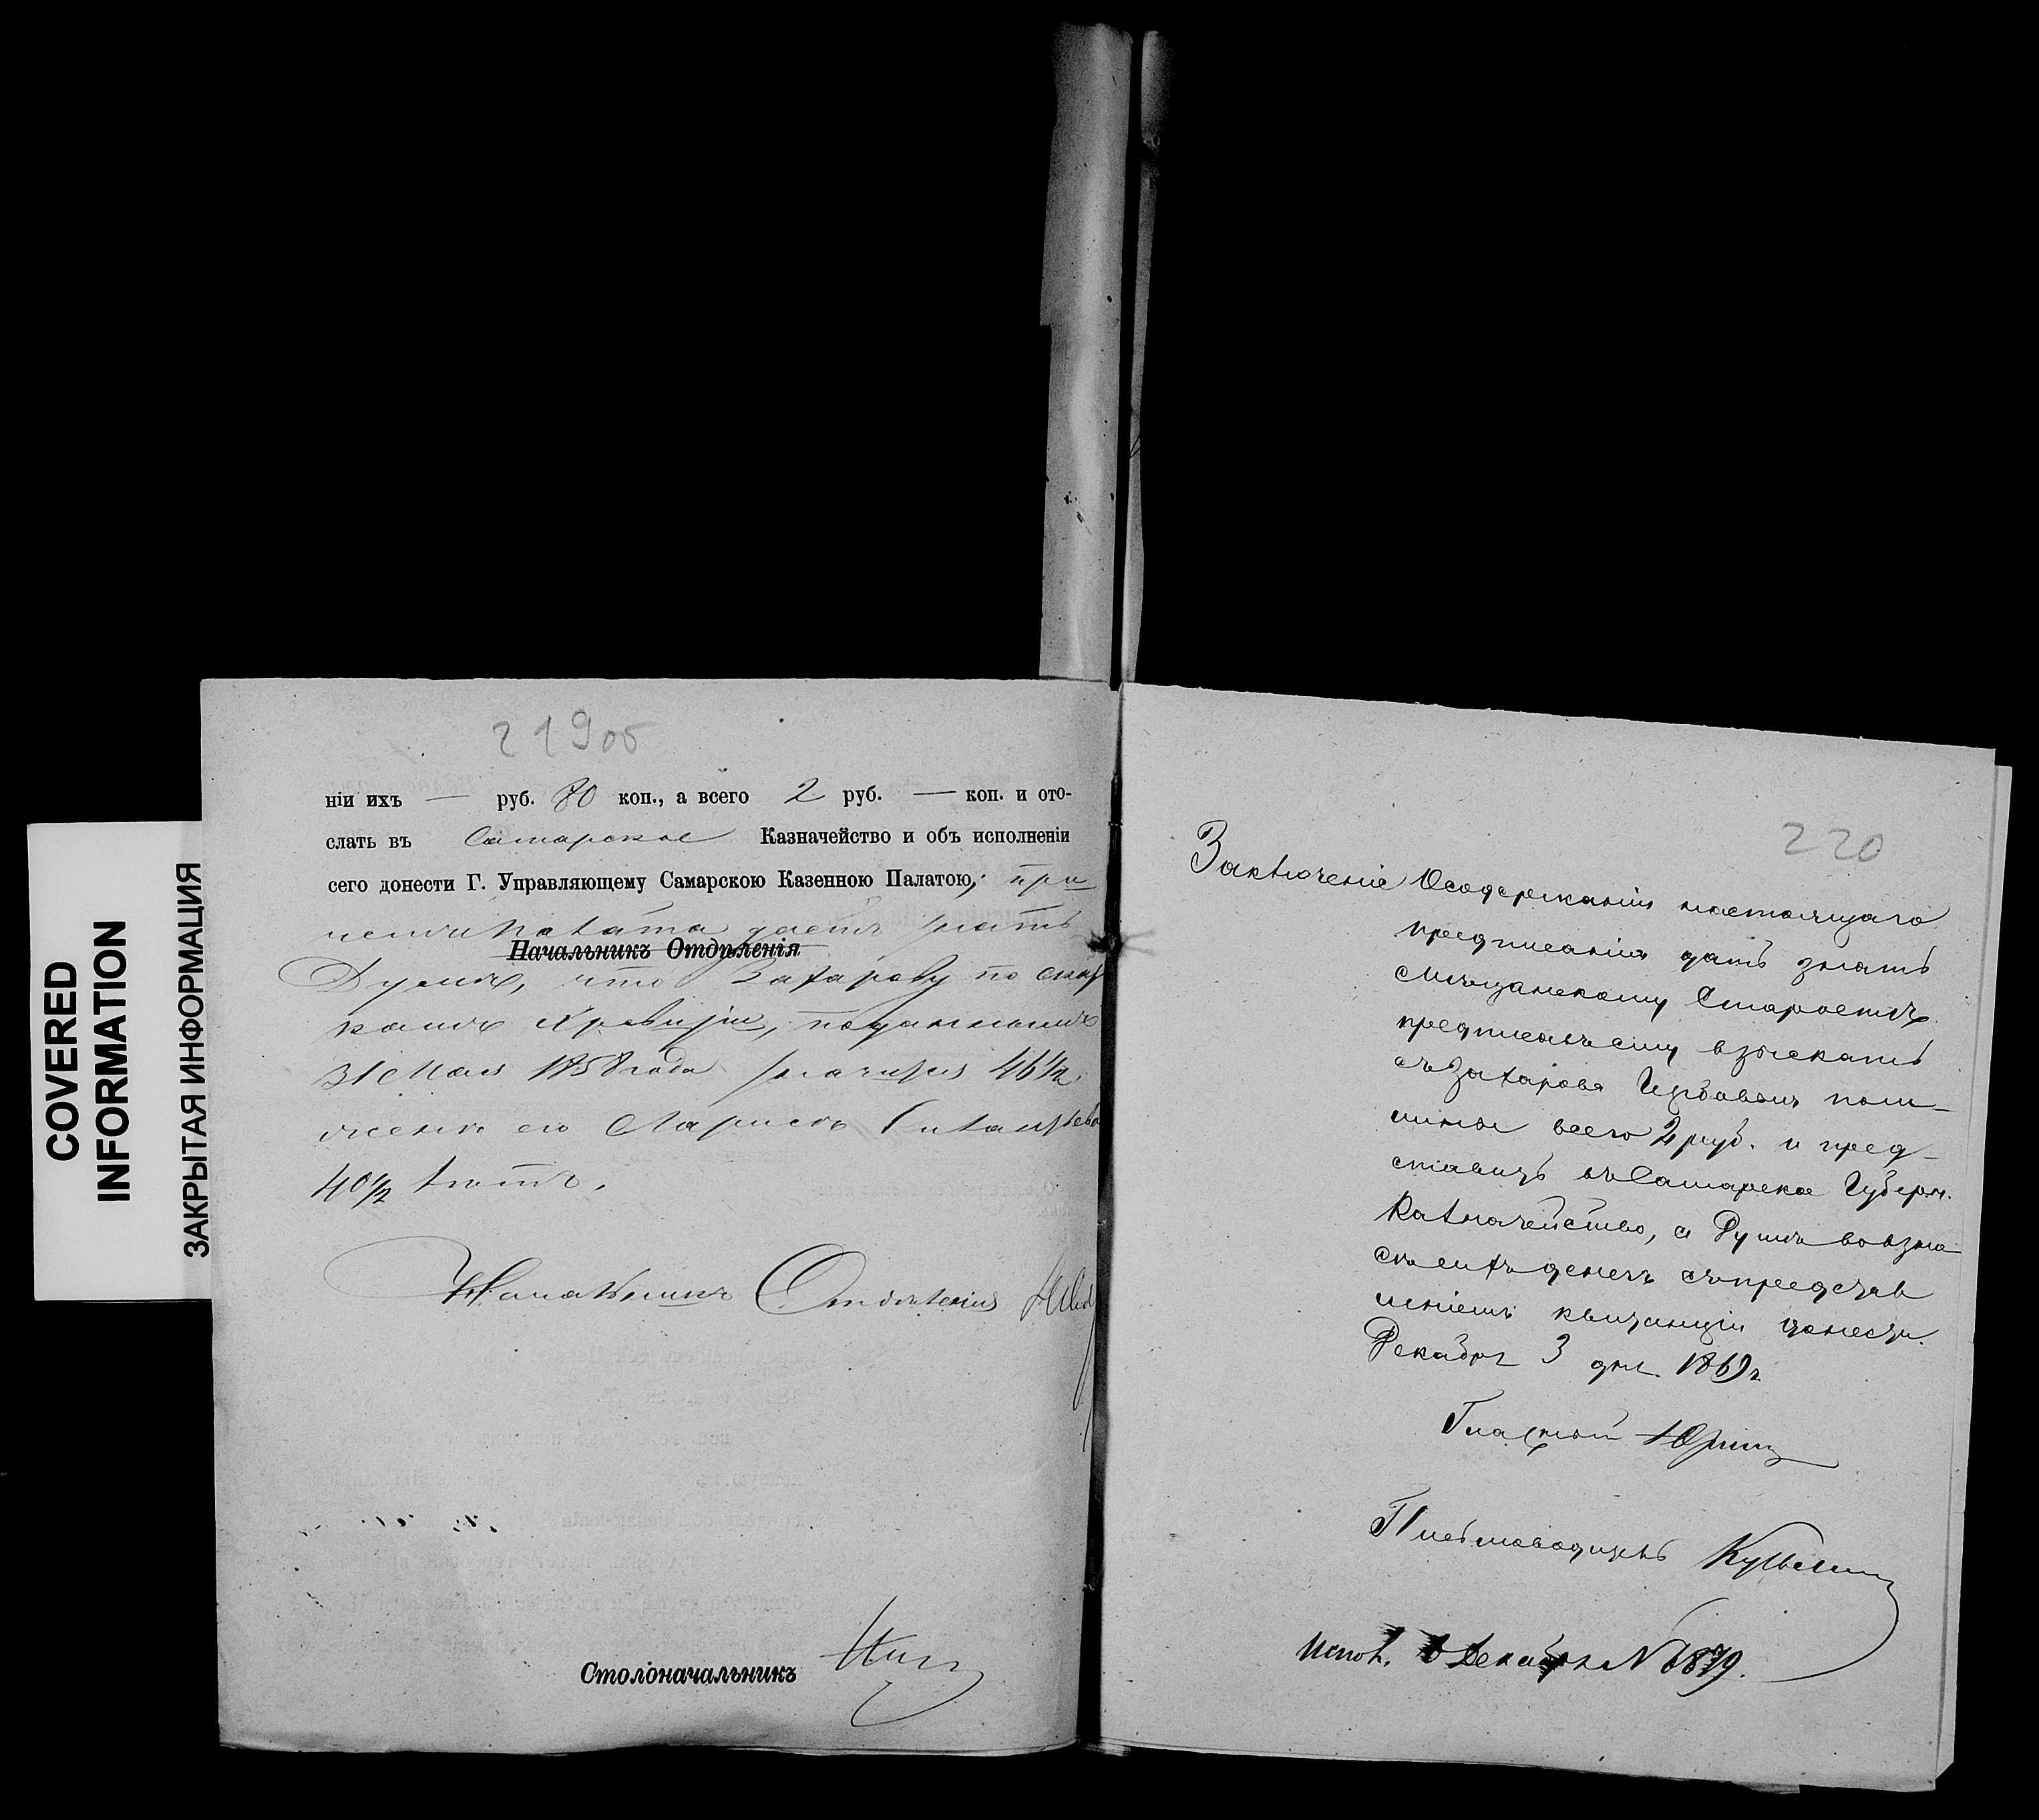 COVERED
INFORMATION
ЗАКРЫТАЯ ИНФОРМАЦИЯ
219об
ніи ихъ — руб. 80 коп., а всего 2 руб. — коп. и ото-
слать въ Самарское Казначейство и объ исполненіи
сего донести Г. Управляющему Самарскою Казенною Палатою, при
чемъ Палата даетъ знать
Начальникъ Отдѣленія
Думѣ, что Захарову по
камъ X ревизіи, поданнымъ
31 Мая 1858 года значится 46½,
женѣ его
40½ лѣтъ.
Начальникъ Отдѣленія
Столоначальникъ
220
Заключеніе О содержаніи настоящаго
предписанія дать знать
мѣщанскому Старостѣ
предписавъ ему взыскать
съ Захарова Гербовыхъ пош-
линъ всего 2 руб. и пред-
ставить въ Самарское Губерн.
Казначейство, а Думѣ о взно
сѣ сихъ денегъ съ представ
леніемъ квитанціи донести.
Декабря 3 дня 1869 г.
Гласный Юринъ
Письмоводитель
Испол. Декабря N 6879.